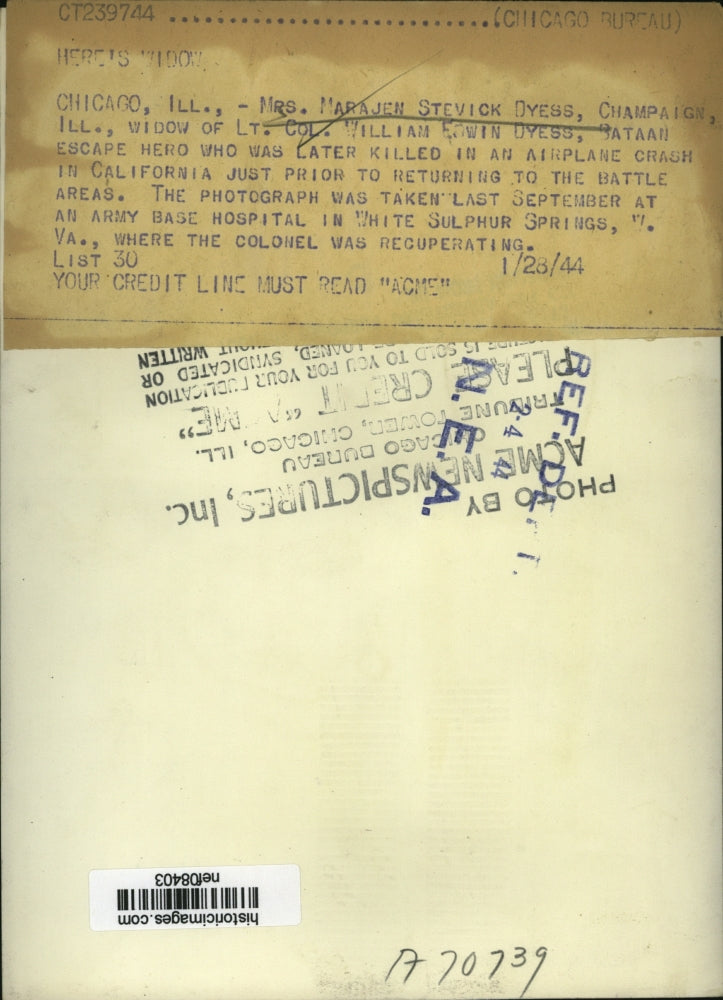 CT239744 ................................(CHICAGO BUREAU)
HERE'S WIDOW
CHICAGO, ILL., - MRS. MARAJEN STEVICK DYESS, CHAMPAIGN,
ILL., WIDOW OF LT. COL. WILLIAM EDWIN DYESS, BATAAN
ESCAPE HERO WHO WAS LATER KILLED IN AN AIRPLANE CRASH
IN CALIFORNIA JUST PRIOR TO RETURNING TO THE BATTLE
AREAS. THE PHOTOGRAPH WAS TAKEN LAST SEPTEMBER AT
AN ARMY BASE HOSPITAL IN WHITE SULPHUR SPRINGS, W.
VA., WHERE THE COLONEL WAS RECUPERATING.
LIST 30 1/28/44
YOUR CREDIT LINE MUST READ "ACME"
PHOTO BY
ACME NEWSPICTURES, Inc.
CHICAGO BUREAU
TRIBUNE TOWER, CHICAGO, ILL.
PLEASE CREDIT "ACME"
PICTURE IS SOLD TO YOU FOR YOUR PUBLICATION
LOANED, SYNDICATED OR
WITHOUT WRITTEN
REF. DEPT.
N. E. A.
historicimages.com
nef08403
A 70739